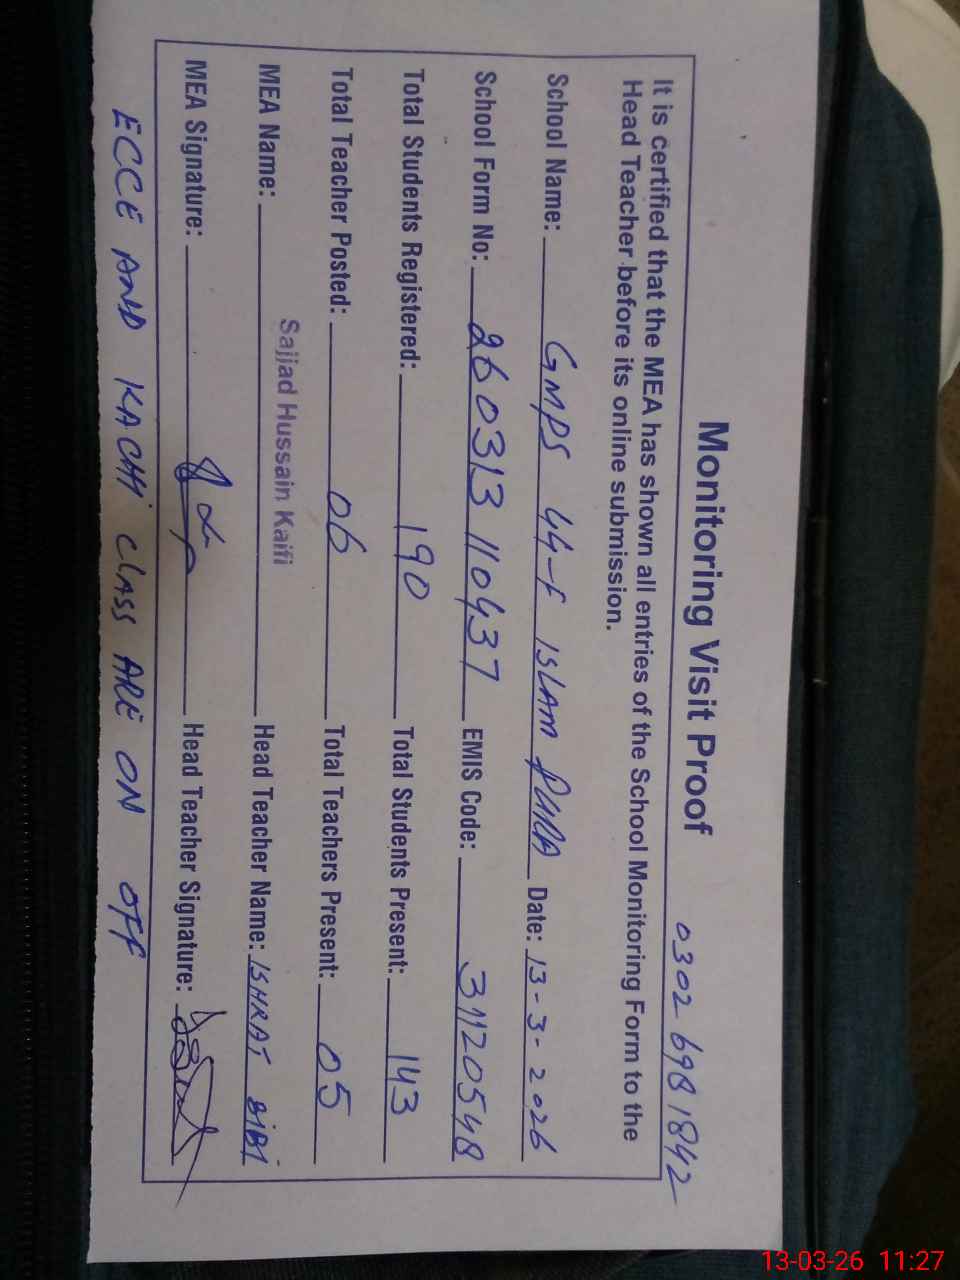 Monitoring Visit Proof 0302 6981842
It is certified that the MEA has shown all entries of the School Monitoring Form to the
Head Teacher before its online submission.
School Name: GMPS 44-F ISLAM PURA Date: 13-3-2026
School Form No: 260313 110437 EMIS Code: 31120548
Total Students Registered: 190 Total Students Present: 143
Total Teacher Posted: 06 Total Teachers Present: 05
MEA Name: Sajjad Hussain Kaifi Head Teacher Name: ISHRAT BIBI
MEA Signature: Head Teacher Signature:
ECCE AND KACHI CLASS ARE ON OFF
13-03-26 11:27